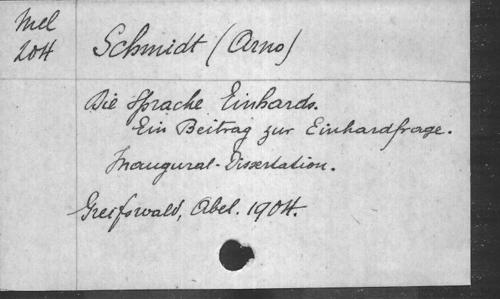 Mel
204
Schmidt (Arno)
Die Sprache Einhards.
Ein Beitrag zur Einhardfrage.
Inaugural-Dissertation.
Greifswald, Abel. 1904.